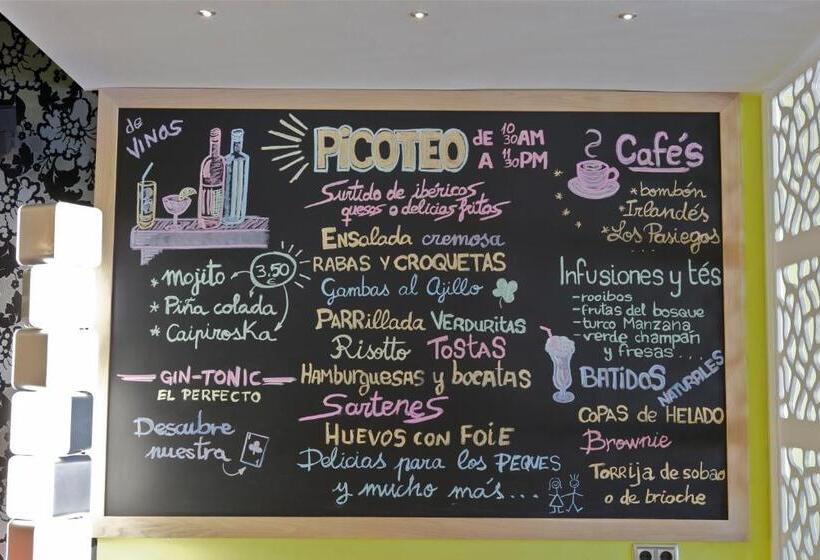 de
VINOS
* Mojito
3,50
* Piña colada
* Caipiroska
GIN-TONIC
EL PERFECTO
Descubre
nuestra
PICOTEO DE 10 30 AM
A 11 30 PM
Surtido de ibéricos
quesos o delicias fritas
ENSalada cremosa
RABAS Y CROQUETAS
Gambas al Ajillo
PARRillada VERDURITAS
Risotto TOSTAS
HAMBURGUESAS y bocatas
Sartenes
HUEVOS CON FOIE
Delicias para los PEQUES
y mucho más...
Cafés
* bombón
* Irlandés
* Los Pasiegos
...
Infusiones y tés
- rooibos
- frutas del bosque
- turco Manzana
- verde champan
y fresas...
BATIDOS
NATURALES
COPAS de HELADO
Brownie
Torrija de sobao
o de brioche